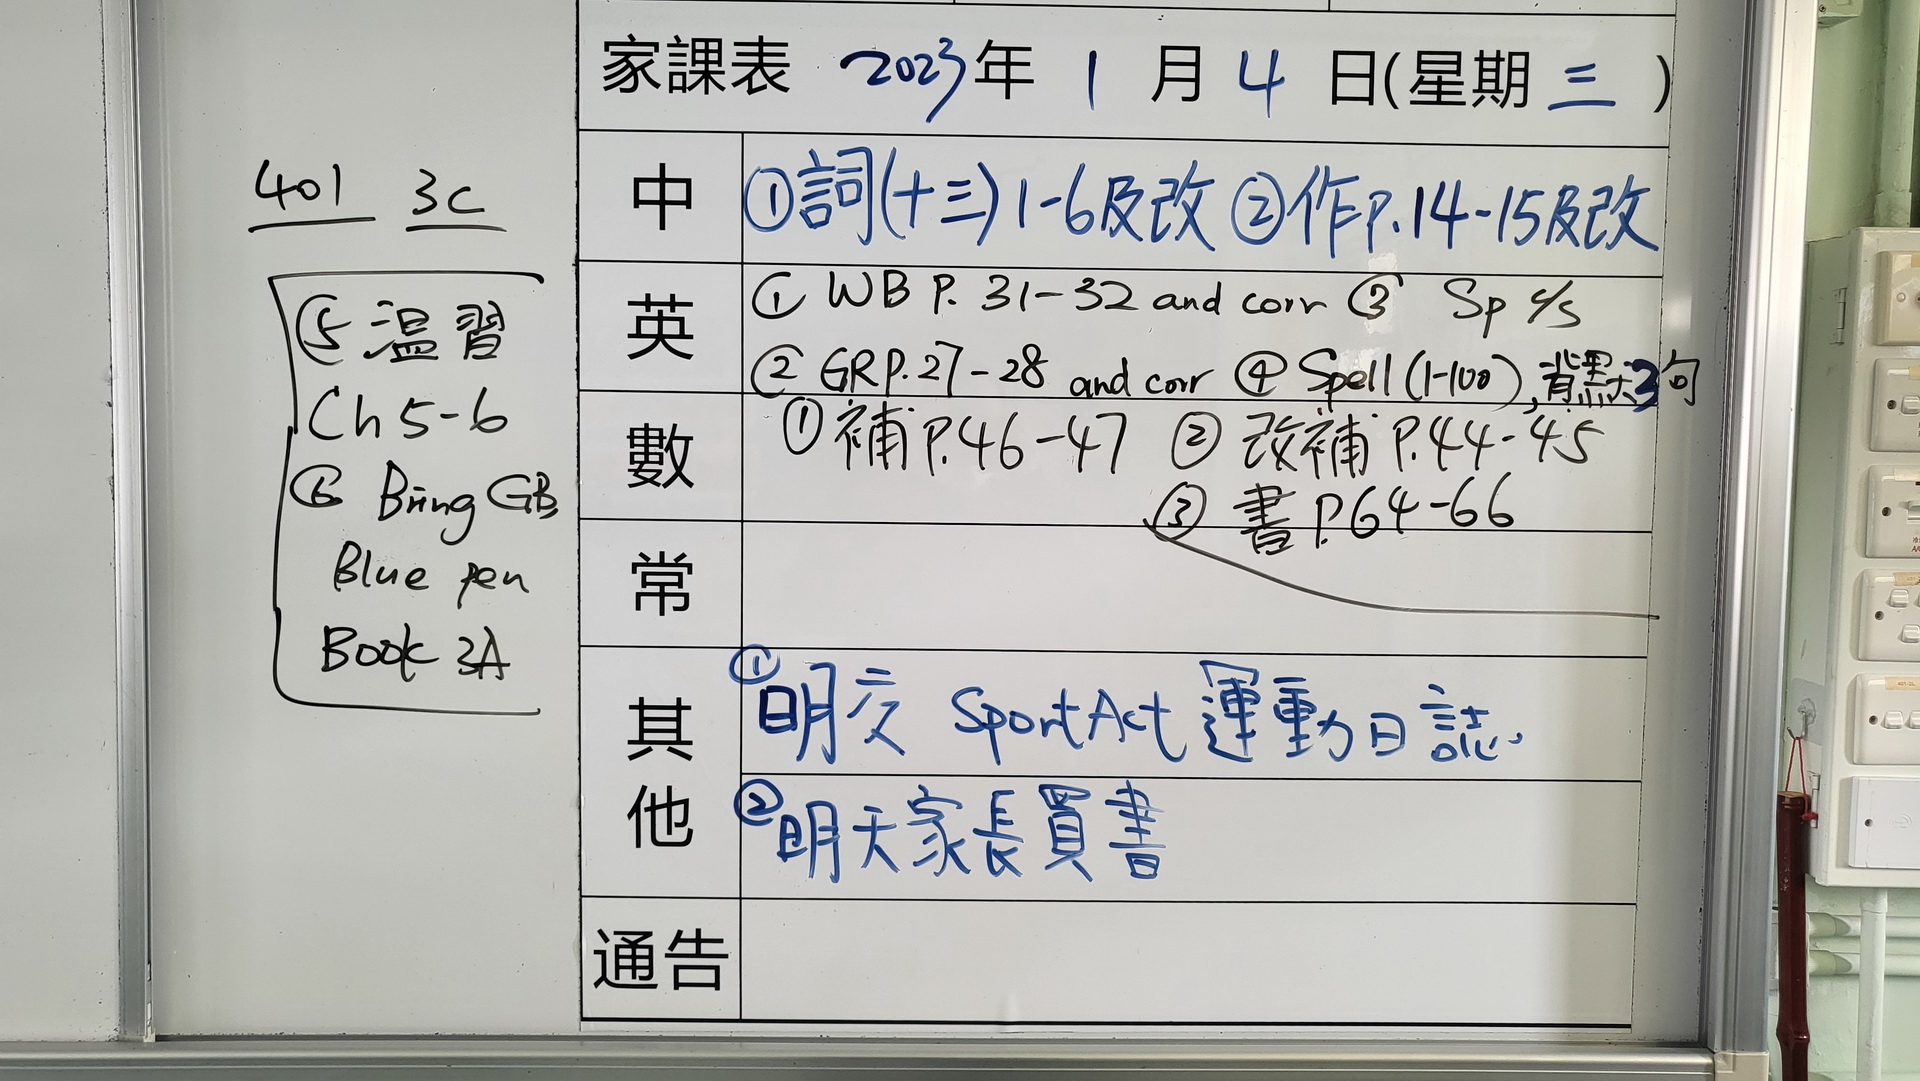 家課表 2023年 1 月 4 日(星期 三 )
401 3C
⑤ 溫習
Ch 5-6
⑥ Bring GB
Blue pen
Book 3A
中 ①詞(十三) 1-6及改 ②作P.14-15及改
英 ① WB P. 31-32 and corr ③ Sp c/s
② GR P.27-28 and corr ④ Spell (1-100), 背默3句
數 ① 補 P.46-47 ② 改補 P.44-45
③ 書 P.64-66
常
其他 ① 明交 SportAct 運動日誌.
② 明天家長買書
通告